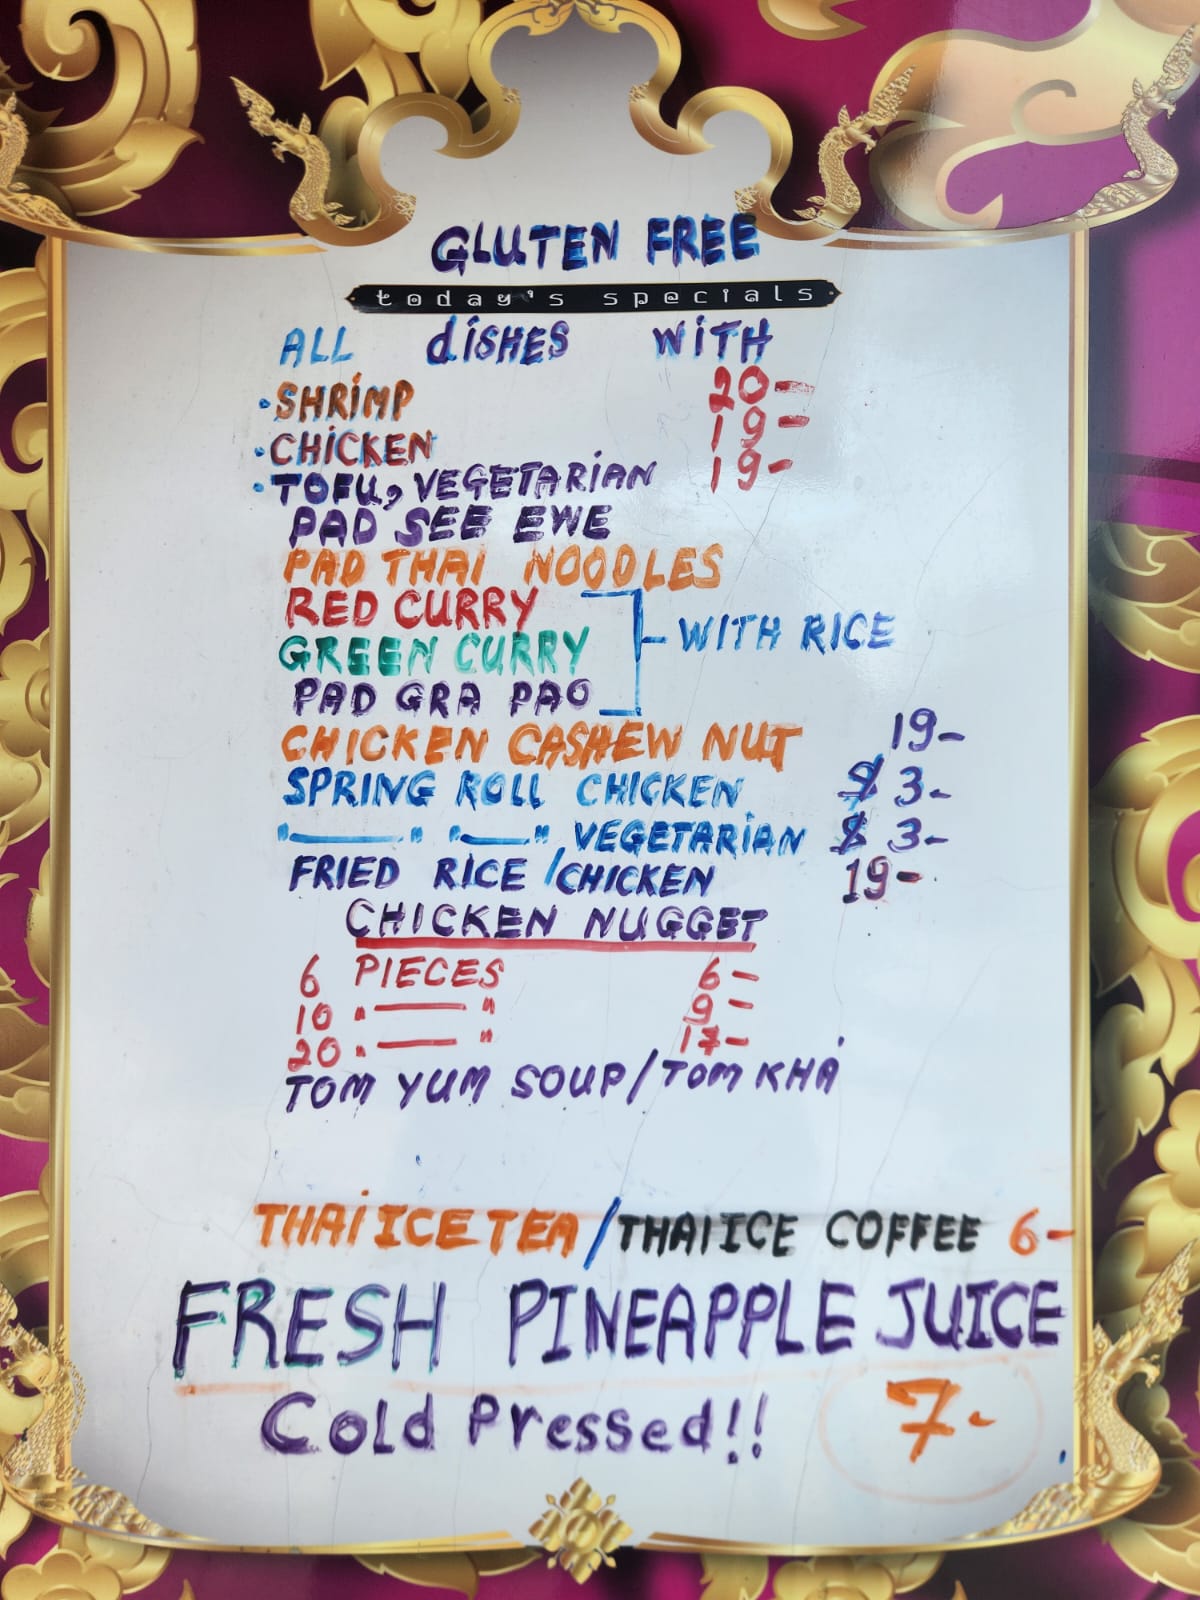 GLUTEN FREE
today's specials
ALL dISHES WiTH
·SHRiMP 20-
·CHiCKEN 19-
·TOFU, VEGETARiAN 19-
PAD SEE EWE
PAD THAI NOODLES
RED CURRY
GREEN CURRY WITH RICE
PAD GRA PAO
CHICKEN CASHEW NUT 19-
SPRING ROLL CHICKEN $ 3-
"——" "—" VEGETARIAN $ 3-
FRIED RICE /CHICKEN 19-
CHICKEN NUGGET
6 PIECES 6-
10 "——" 9-
20 "——" 17-
TOM YUM SOUP/TOM KHA
THAI ICE TEA/THAI ICE COFFEE 6-
FRESH PINEAPPLE JUICE
Cold Pressed!! 7-